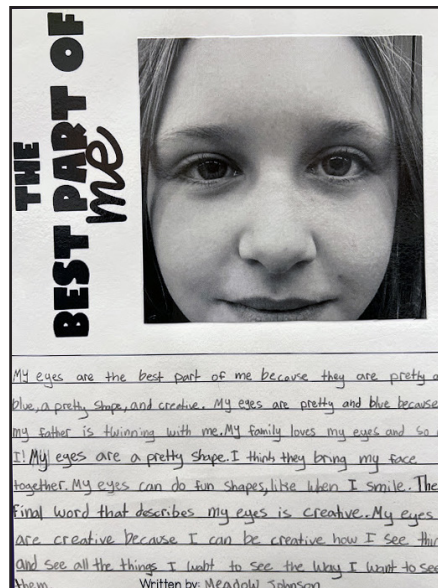 THE
BEST PART OF
me
My eyes are the best part of me because they are pretty
blue, a pretty shape, and creative. My eyes are pretty and blue because
my father is twinning with me. My family loves my eyes and so
I! My eyes are a pretty shape. I think they bring my face
together. My eyes can do fun shapes, like when I smile. The
final word that describes my eyes is creative. My eyes
are creative because I can be creative how I see
and see all the things I want to see the way I want to see
them. Written by: Meadow Johnson